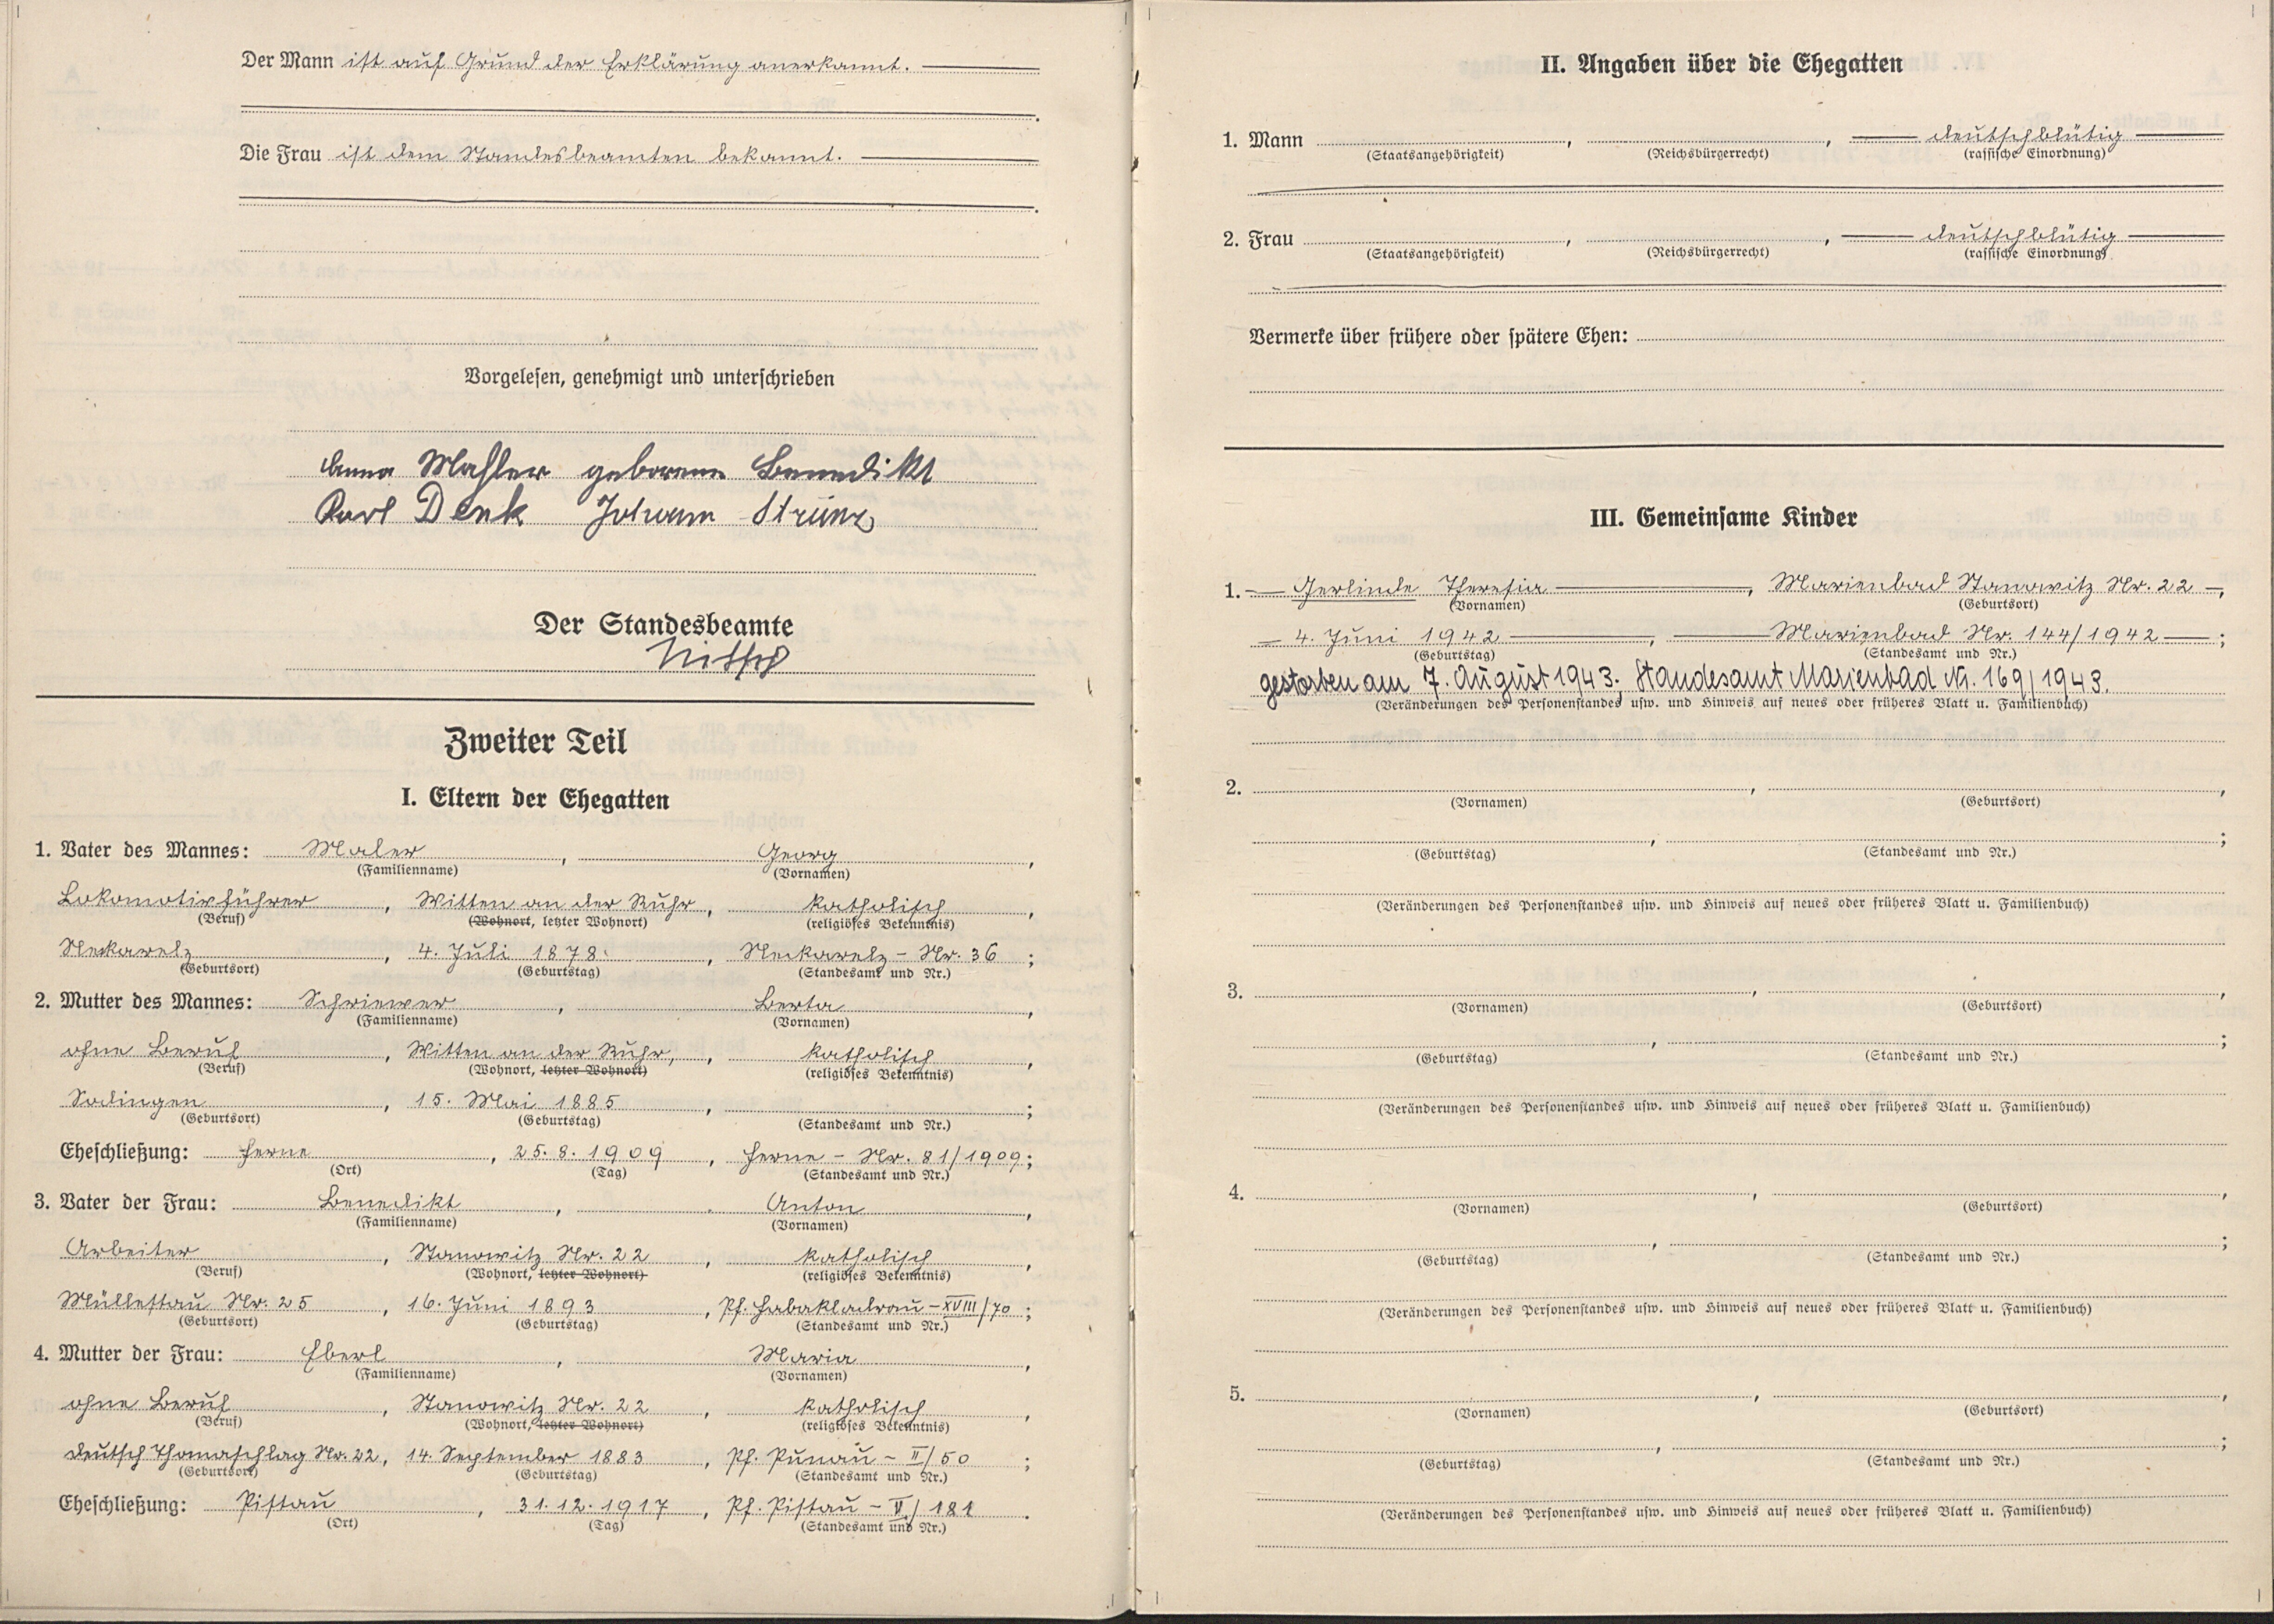 Der Mann ist auf Grund der Erklärung anerkannt.
Die Frau ist dem Standesbeamten bekannt.
Vorgelesen, genehmigt und unterschrieben
Anna Mahler geborene Benedikt
Karl Denk Johann Strunz
Der Standesbeamte
Nitsch
Zweiter Teil
I. Eltern der Ehegatten
1. Vater des Mannes: Maler, Georg,
(Familienname) (Vornamen)
Lokomotivführer, Witten an der Ruhr, katholisch,
(Beruf) (Wohnort, letzter Wohnort) (religiöses Bekenntnis)
Neckarelz, 4. Juli 1878, Neckarelz - Nr. 36;
(Geburtsort) (Geburtstag) (Standesamt und Nr.)
2. Mutter des Mannes: Schriewer, Berta,
(Familienname) (Vornamen)
ohne Beruf, Witten an der Ruhr, katholisch,
(Beruf) (Wohnort, letzter Wohnort) (religiöses Bekenntnis)
Sodingen, 15. Mai 1885, ;
(Geburtsort) (Geburtstag) (Standesamt und Nr.)
Eheschließung: Herne, 25.8.1909, Herne - Nr. 81/1909;
(Ort) (Tag) (Standesamt und Nr.)
3. Vater der Frau: Benedikt, Anton,
(Familienname) (Vornamen)
Arbeiter, Stanowitz Nr. 22, katholisch,
(Beruf) (Wohnort, letzter Wohnort) (religiöses Bekenntnis)
Müllestau Nr. 25, 16. Juni 1893, Pf. Habakladrau - XVIII/70;
(Geburtsort) (Geburtstag) (Standesamt und Nr.)
4. Mutter der Frau: Eberl, Maria,
(Familienname) (Vornamen)
ohne Beruf, Stanowitz Nr. 22, katholisch,
(Beruf) (Wohnort, letzter Wohnort) (religiöses Bekenntnis)
Deutsch Thomaschlag Nr. 22, 14. September 1883, Pf. Punau - II/50;
(Geburtsort) (Geburtstag) (Standesamt und Nr.)
Eheschließung: Pistau, 31.12.1917, Pf. Pistau - V/181.
(Ort) (Tag) (Standesamt und Nr.)
II. Angaben über die Ehegatten
1. Mann , , deutschblütig
(Staatsangehörigkeit) (Reichsbürgerrecht) (rassische Einordnung)
2. Frau , , deutschblütig
(Staatsangehörigkeit) (Reichsbürgerrecht) (rassische Einordnung)
Vermerke über frühere oder spätere Ehen:
III. Gemeinsame Kinder
1. Gerlinde Theresia, Marienbad Stanowitz Nr. 22,
(Vornamen) (Geburtsort)
4. Juni 1942, Marienbad Nr. 144/1942;
(Geburtstag) (Standesamt und Nr.)
gestorben am 7. August 1943; Standesamt Marienbad Nr. 169/1943.
(Veränderungen des Personenstandes usw. und Hinweis auf neues oder früheres Blatt u. Familienbuch)
2. , ,
(Vornamen) (Geburtsort)
, ;
(Geburtstag) (Standesamt und Nr.)
(Veränderungen des Personenstandes usw. und Hinweis auf neues oder früheres Blatt u. Familienbuch)
3. , ,
(Vornamen) (Geburtsort)
, ;
(Geburtstag) (Standesamt und Nr.)
(Veränderungen des Personenstandes usw. und Hinweis auf neues oder früheres Blatt u. Familienbuch)
4. , ,
(Vornamen) (Geburtsort)
, ;
(Geburtstag) (Standesamt und Nr.)
(Veränderungen des Personenstandes usw. und Hinweis auf neues oder früheres Blatt u. Familienbuch)
5. , ,
(Vornamen) (Geburtsort)
, ;
(Geburtstag) (Standesamt und Nr.)
(Veränderungen des Personenstandes usw. und Hinweis auf neues oder früheres Blatt u. Familienbuch)